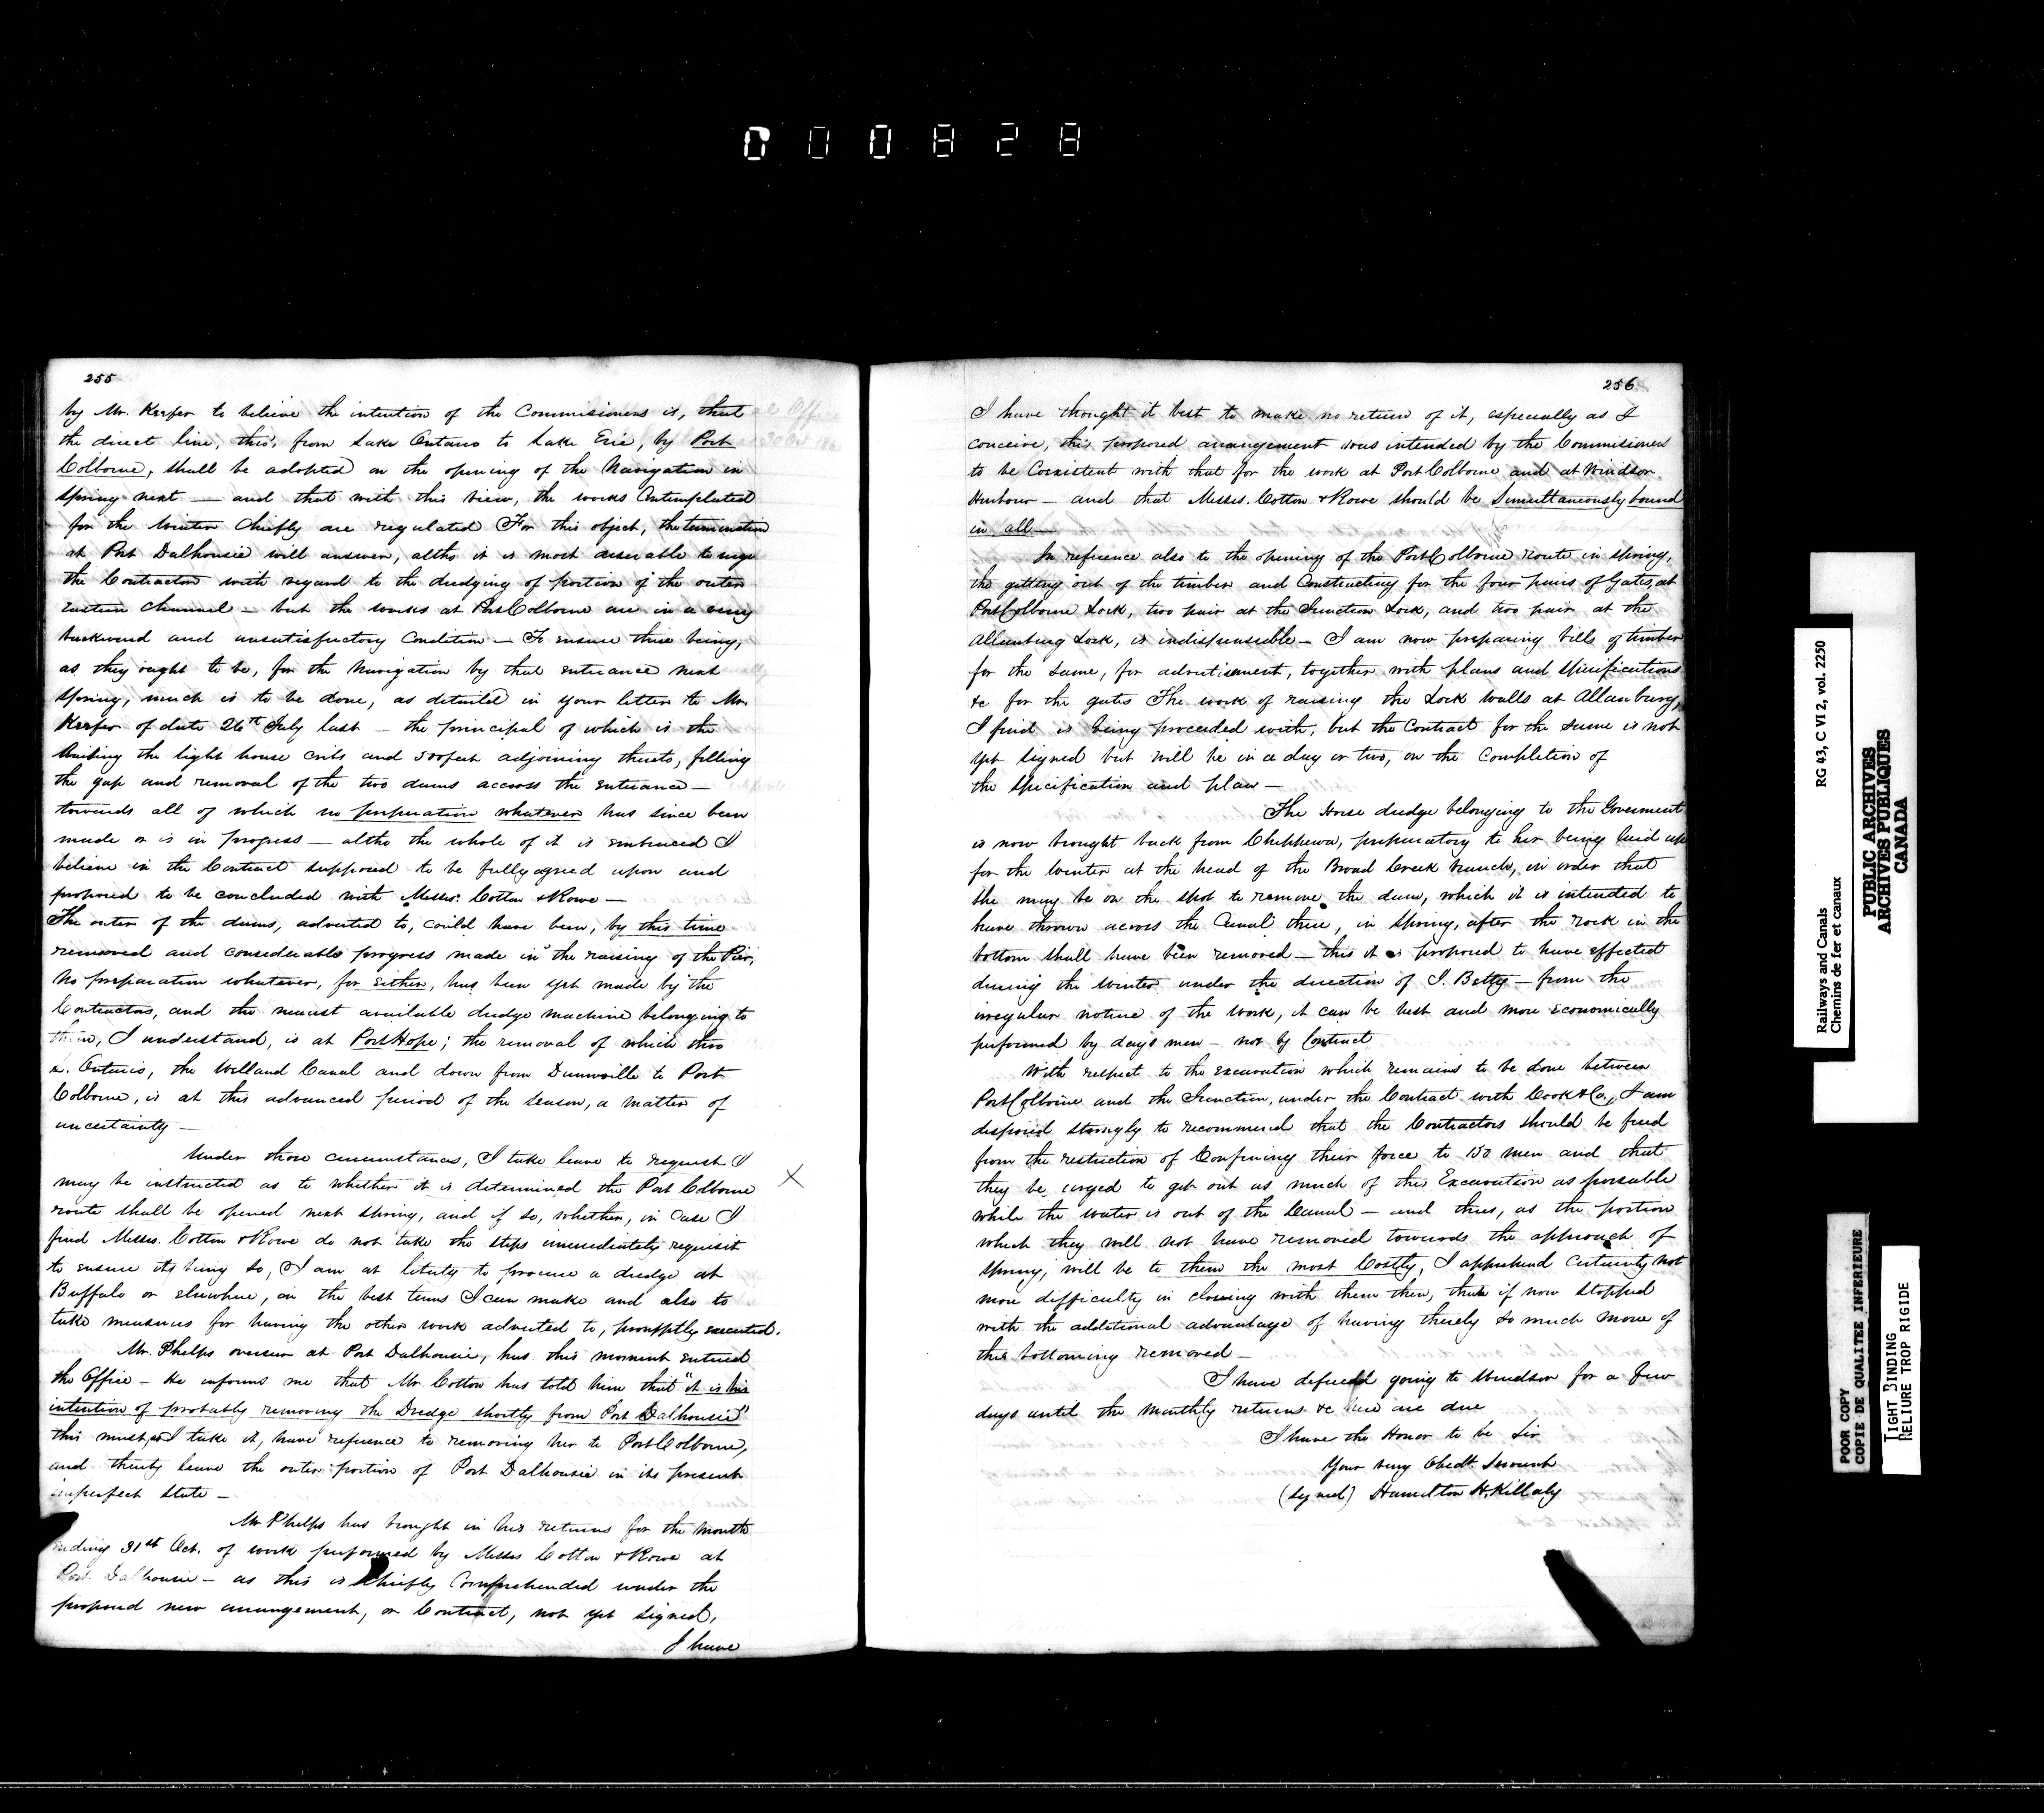 000828
255
by Mr. Keefer to believe the intention of the Commisioners is, that
the direct line, this, from Lake Ontario to Lake Erie, by Port
Colborne, shall be adopted on the opening of the Navigation in
Spring next — and that with this view, the works Contemplated
for the Winter Chiefly are regulated For this object, the termination
at Port Dalhousie will answer, altho it is most desirable to urge
the Contractors with regard to the dredging of portion of the outer
Eastern Channel — but the works at Port Colborne are in a very
backward and unsatisfactory Condition — To ensure their being,
as they ought to be, for the Navigation by that entrance next
Spring, much is to be done, as detailed in your letter to Mr.
Keefer of date 26th July last — the principal of which is the
building the light house crib and 500 feet adjoining thereto, filling
the gap and removal of the two dams accross the entrance —
towards all of which no preparation whatever has since been
made or is in progress — altho the whole of it is embraced I
believe in the Contract supposed to be fully agreed upon and
proposed to be concluded with Messrs. Cotton & Rowe —
The outer of the dams, adverted to, could have been, by this time
removed and considerable progress made in the raising of the Pier,
No preparation whatever, for either, has been yet made by the
Contractors, and the nearest available dredge machine belonging to
them, I understand, is at Port Hope; the removal of which thro
L. Ontario, the Welland Canal and down from Dunnville to Port
Colborne, is at this advanced period of the season, a matter of
uncertainty —
Under those circumstances, I take leave to request I
may be instructed as to whether it is determined the Port Colborne
route shall be opened next Spring, and if so, whether, in case I
find Messrs. Cotton & Rowe do not take the steps immediately requisit
to ensure its being so, I am at liberty to procure a dredge at
Buffalo or elsewhere, on the best terms I can make and also to
take measures for having the other work adverted to, promptly executed.
Mr. Phelps overseer at Port Dalhousie, has this moment entered
the Office — He informs me that Mr. Cotton has told him that "it is his
intention of probably removing the Dredge shortly from Port Dalhousie"
this must, as I take it, have reference to removing her to Port Colborne,
and thereby leave the outer portion of Port Dalhousie in its present
imperfect state —
Mr Phelps has brought in his returns for the month
ending 31st Oct. of work performed by Messrs Cotton & Rowe at
Port Dalhousie — as this is Chiefly Comprehended under the
proposed new arrangement, or Contract, not yet signed,
I have
256
I have thought it best to make no return of it, especially as I
conceive, this proposed arrangement was intended by the Commisioners
to be Coexistent with that for the work at Port Colborne and at Windsor
Harbour — and that Messrs. Cotton & Rowe should be Simultaneously bound
in all —
In reference also to the opening of the Port Colborne route in Spring,
the getting out of the timber and Constructing for the four pairs of Gates, at
Port Colborne Lock, two pair at the Junction Lock, and two pair at the
Allanburg Lock, is indispensible — I am now preparing bills of timber
for the same, for advertisment, together with plans and specifications
&c for the gates The work of raising the Lock walls at Allanburg,
I find is being proceeded with, but the Contract for the same is not
yet signed but will be in a day or two, on the Completion of
the specification and plan —
The Horse dredge belonging to the Goverment
is now brought back from Chippewa, preparatory to her being laid up
for the Winter at the head of the Broad Creek branch, in order that
She may be on the spot to remove the dam, which it is intended to
have thrown across the Canal there, in Spring, after the rock in the
bottom shall have been removed — this it is proposed to have effected
during the Winter under the direction of J. Betty — from the
irregular nature of the work, it can be best and more economically
performed by day's men — not by Contract
With respect to the excavation which remains to be done between
Port Colborne and the Junction, under the Contract with Cook & Co., I am
disposed strongly to recommend that the Contractors should be freed
from the restriction of Confining their force to 150 men and that
they be urged to get out as much of this Excavation as possable
while the water is out of the Canal — and thus, as the portion
which they will not have removed towards the approach of
Spring, will be to them the most Costly, I apprehend Certainly not
more difficulty in closing with them then, than if now stopped
with the additional advantage of having thereby so much more of
this bottoming removed —
I have defered going to Windsor for a few
days until the monthly returns &c here are due
I have the Honor to be Sir
Your very Obedt. Servant
(Signed) Hamilton H. Killaly
Railways and Canals
Chemins de fer et canaux
RG 43, C VI 2, vol. 2250
PUBLIC ARCHIVES
ARCHIVES PUBLIQUES
CANADA
POOR COPY
COPIE DE QUALITEE INFERIEURE
TIGHT BINDING
RELIURE TROP RIGIDE